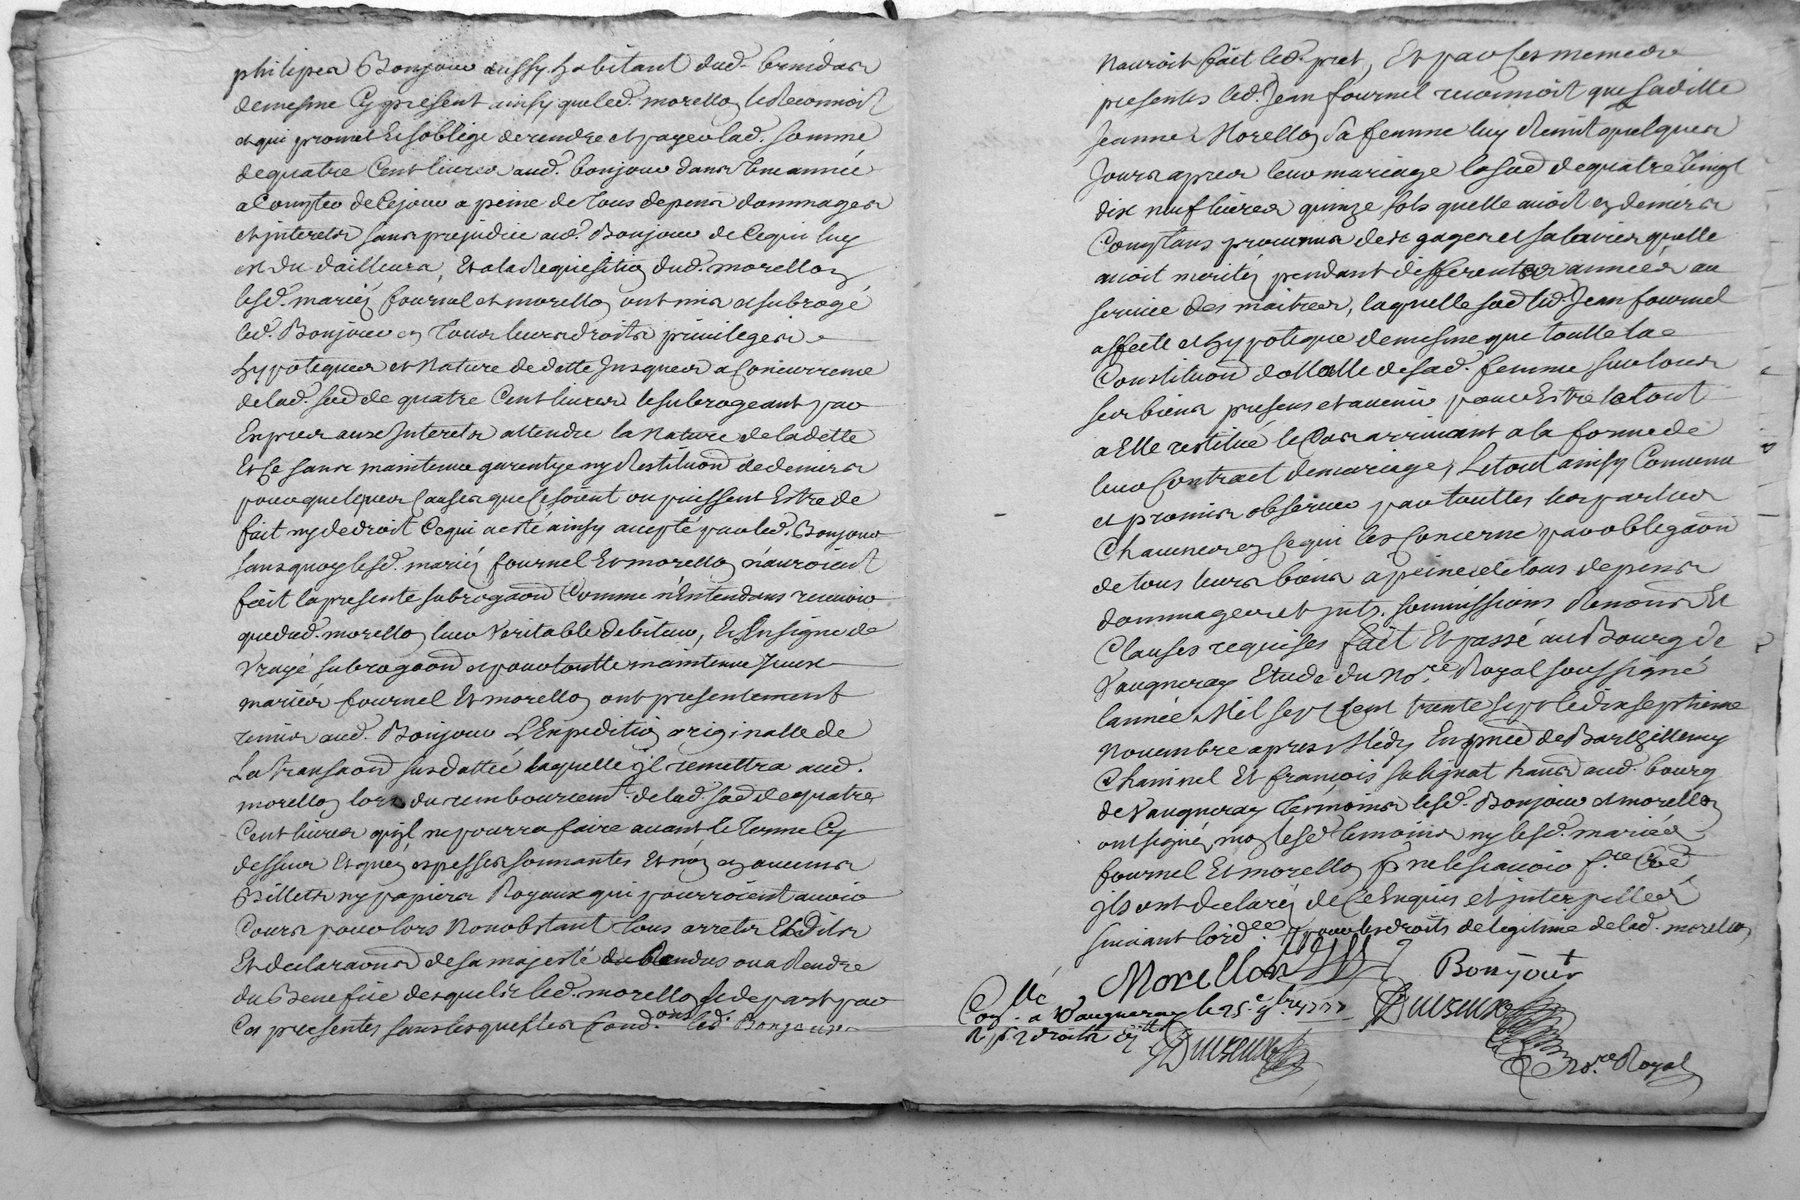 philipes Bonjour aussy habitant dud. brindas
demesme Cy present ainsy que led. morellon le Reconnoist
et qui promet Et soblige de rendre et payer lad. somme
de quatre Cent livres aud. bonjour dans Une année
a Compter de Ce jour a peine de tous depens dommages
et interets sans prejudice aud. Bonjour de Ce qui luy
est du dailleurs, Et a la Requisition dud. morellon
lesd. mariés fournel et morellon ont mis et subrogé
led. Bonjour en Tous leurs droits privileges
hypoteques et Nature de dette Jusques a Concurrence
de lad. so̅e̅ de quatre Cent livres le subrogeant par
Exprès aux Interets attendu la Nature de la dette
Et Ce sans maintenue garentye ny Restituon̅ de deniers
pour quelques Causes que Ce soient ou puissent Estre de
fait ny de droit Ce qui a esté ainsy accepté par led. Bonjour
sans quoy lesd. mariés fournel Et morellon n'auroient
fait la presente subrogaon̅ Comme n'Entendans recevoir
que dud. morellon leur Veritable debiteur, Et En signe de
Vraye subrogaon̅ et pour toutte maintenue Iceux
mariés fournel Et morellon ont presentement
remis aud. Bonjour L'Expedition originalle de
La transaon̅ susdattée laquelle il remettra aud.
morellon lors du rembourcemt. de lad. so̅e̅ de quatre
Cent livres qu'il ne pourra faire avant le Terme Cy
dessus Et qu'en espesses sonnantes Et non en aucuns
Billets ny papiers Royaux qui pourroient avoir
Cours pour lors Nonobstant Tous arrets Edits
Et declaraons̅ de sa majesté Rendus ou a Rendre
du Benefice desquels led. morellon se depart par
Ces presentes sans lesquelles Cond.ons led. Bonjour
Nauroit fait led. pret, Et par les mesmes
presentes led. Jean fournel reconnoit que laditte
Jeanne Morellon sa femme luy Remit quelques
Jours apres leur mariage la so̅e̅ de quatre Vingt
dix neuf livres quinze sols quelle avoit en deniers
Comptans provenus de ses gages et salaires quelle
avoit merités pendant differentes années au
service des maitres, laquelle so̅e̅ led. Jean fournel
affecte et hypoteque demesme que toutte la
Constituon̅ dottalle de sad. femme sur tous
ses biens presens et avenir pour Estre le tout
a Elle restitué le Cas arrivant a la forme de
leur Contract de mariage, Le tout ainsy Convenu
et promis observer par touttes les parties
Chacunes en Ce qui les Concerne par obligaon̅
de tous leurs biens a peine de tous depens
dommages et ints. soumissions Renons̅ Et
Clauses requises fait Et passé au Bourg de
Vaugneray Etude du No.re Royal soussigné
lannée Mil sept Cent trente sept le dix septieme
Novembre apres Midy En pnce̅ de Barthellemy
Chaninel Et françois salignat hans̅ aud. bourg
de Vaugneray Temoins lesd. Bonjour et morellon
ont signés, non lesd. temoins ny lesd. mariés
fournel Et morellon p̅ ne le scavoir f.re Co̅e̅
ils ont declarés de Ce Enquis et interpellés
suivant lord.ce pour les droits de legitime de lad. morellon
Morellon Bonjour
Con.llé a Vaugneray le 25e 9bre 1737
R p.r 2 droits
No.re Royal